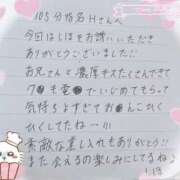 105分指名Hさんへ
今回はしほをお誘いいただき
ありがとうございました!!
お兄さんと濃厚キスたくさんできて
ク○も竜○でいじめてもらって
気持ちよすぎてお○んこひく
ひくしてたねー!!!
素敵な差し入れもありがとう!!
また会えるの楽しみにしてるね♪
1.18